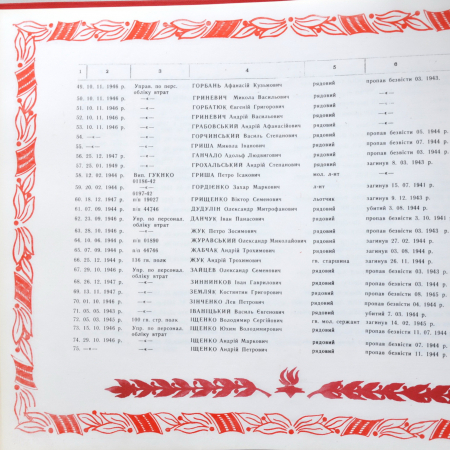 1 2 3 4 5 6
49. 10. 11. 1946 р. Управ. по перс. ГОРБАНЬ Афанасій Кузьмович рядовий пропав безвісти 03. 1943.
обліку втрат
50. 10. 11. 1946 р. —«— ГРИНЕВИЧ Микола Васильович рядовий —«—
51. 10. 11. 1946 р. —«— ГОРБАТЮК Євгеній Григорович рядовий —«—
52. 10. 11. 1946 р. —«— ГРИНЕВИЧ Андрій Васильович рядовий —«—
53. 10. 11. 1946 р. —«— ГРАБОВСЬКИЙ Андрій Афанасійович рядовий —«—
54. —«— —«— ГОРЧИНСЬКИЙ Василь Степанович рядовий пропав безвісти 05. 1944 р.
55. —«— —«— ГРИША Микола Іванович рядовий пропав безвісти 07. 1944 р.
56. 25. 12. 1947 р. —«— ГАНЧАЛО Адольф Люціанович рядовий пропав безвісти 03. 1944 р.
57. 25. 01. 1949 р. —«— ГРОХАЛЬСЬКИЙ Андрій Степанович рядовий загинув 8. 03. 1943 р.
58. 12. 02. 1946 р. Вип. ГУКНКО ГРИША Петро Ісакович мол. л-нт —«—
01196-42
59. 26. 02. 1946 р. 0197-42 ГОРДІЄНКО Захар Маркович л-нт загинув 15. 07. 1941 р.
60. 18. 12. 1947 р. п/п 19027 ГРИЩЕНКО Віктор Семенович льотчик загинув 9. 12. 1943 р.
61. 07. 09. 1944 р. п/п 44746 ДУДУЛІН Олександр Митрофанович рядовий убитий 3. 08. 1944 р.
62. 23. 08. 1949 р. Упр. по персонал. ДАНЧУК Іван Панасович рядовий пропав безвісти 3. 10. 1941
обліку втрат
63. 28. 10. 1946 р. —«— ЖУК Петро Зосимович рядовий пропав безвісти 03. 1943 р.
64. 10. 06. 1944 р. п/п 01890 ЖУРАВСЬКИЙ Олександр Миколайович рядовий загинув 27. 02. 1944 р.
65. 07. 09. 1944 р. п/п 44766 ЖАБЧАК Андрій Трохимович рядовий загинув 05. 08. 1944 р.
66. 25. 12. 1944 р. 136 гв. полк ЖУК Андрій Трохимович гв. старшина загинув 26. 11. 1944 р.
67. 29. 10. 1946 р. Упр. по персонал. ЗАЙЦЕВ Олександр Семенович рядовий пропав безвісти 03. 1943 р.
обліку втрат
68. 26. 12. 1947 р. —«— ЗИННИКОВ Іван Гаврилович рядовий пропав безвісти 03. 1944 р.
69. 13. 11. 1947 р. —«— ЗЕМЛЯК Костянтин Григорович рядовий пропав безвісти 09. 1943 р.
70. 01. 10. 1946 р. —«— ЗІНЧЕНКО Лев Петрович рядовий пропав безвісти 06. 1944 р.
71. 05. 05. 1943 р. —«— ІВАНІЦЬКИЙ Василь Євгенович рядовий убитий 7. 03. 1944 р.
72. 05. 03. 1945 р. 100 гв. стр. полк ІЩЕНКО Володимир Сергійович гв. мол. сержант загинув 18. 02. 1945 р.
73. 15. 10. 1946 р. Упр. по персонал. ІЩЕНКО Юхим Володимирович рядовий пропав безвісти 11. 07. 1944
обліку втрат
74. 29. 10. 1946 р. —«— ІЩЕНКО Андрій Маркович рядовий пропав безвісти 07. 1944 р.
75. —«— —«— ІЩЕНКО Андрій Петрович рядовий пропав безвісти 11. 1944 р.